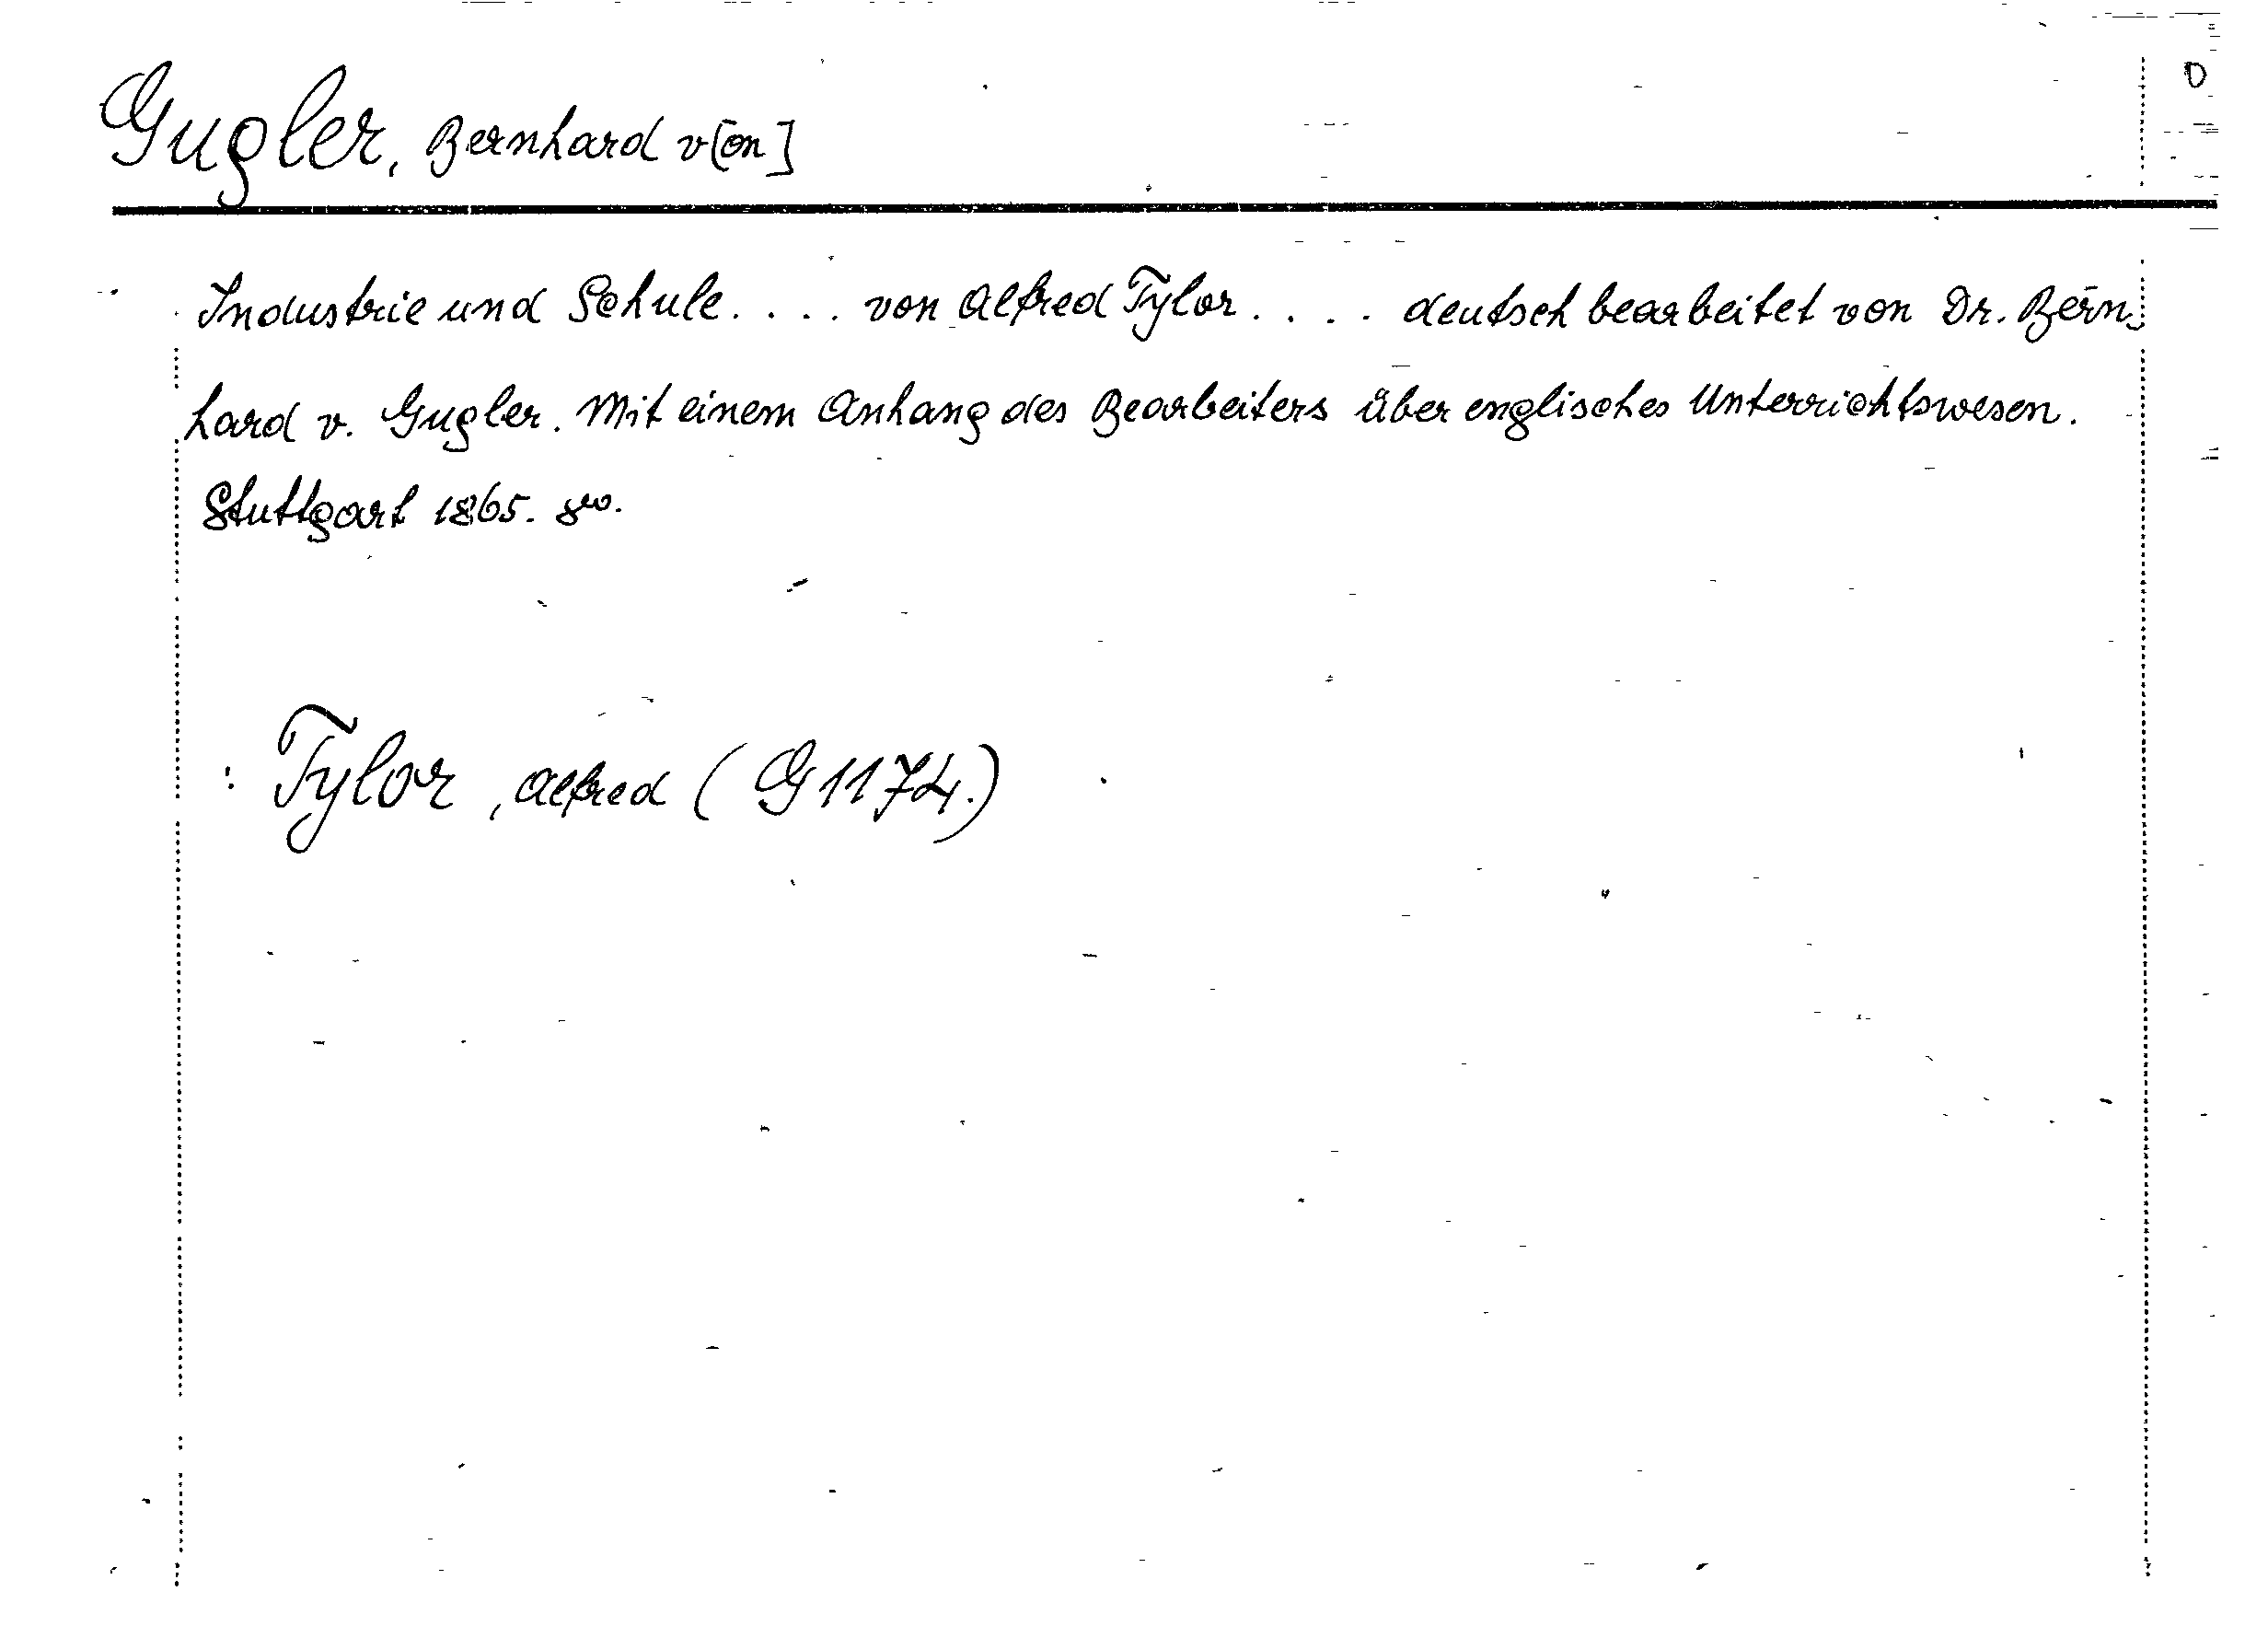 Gugler, Bernhard v[on]
D
Industrie und Schule.... von Alfred Tylor.... deutsch bearbeitet von Dr. Bern
hard v. Gugler. Mit einem Anhang des Bearbeiters über englisches Unterrichtswesen.
Stuttgart 1865. 8vo.
: Tylor, Alfred (G 1174.)